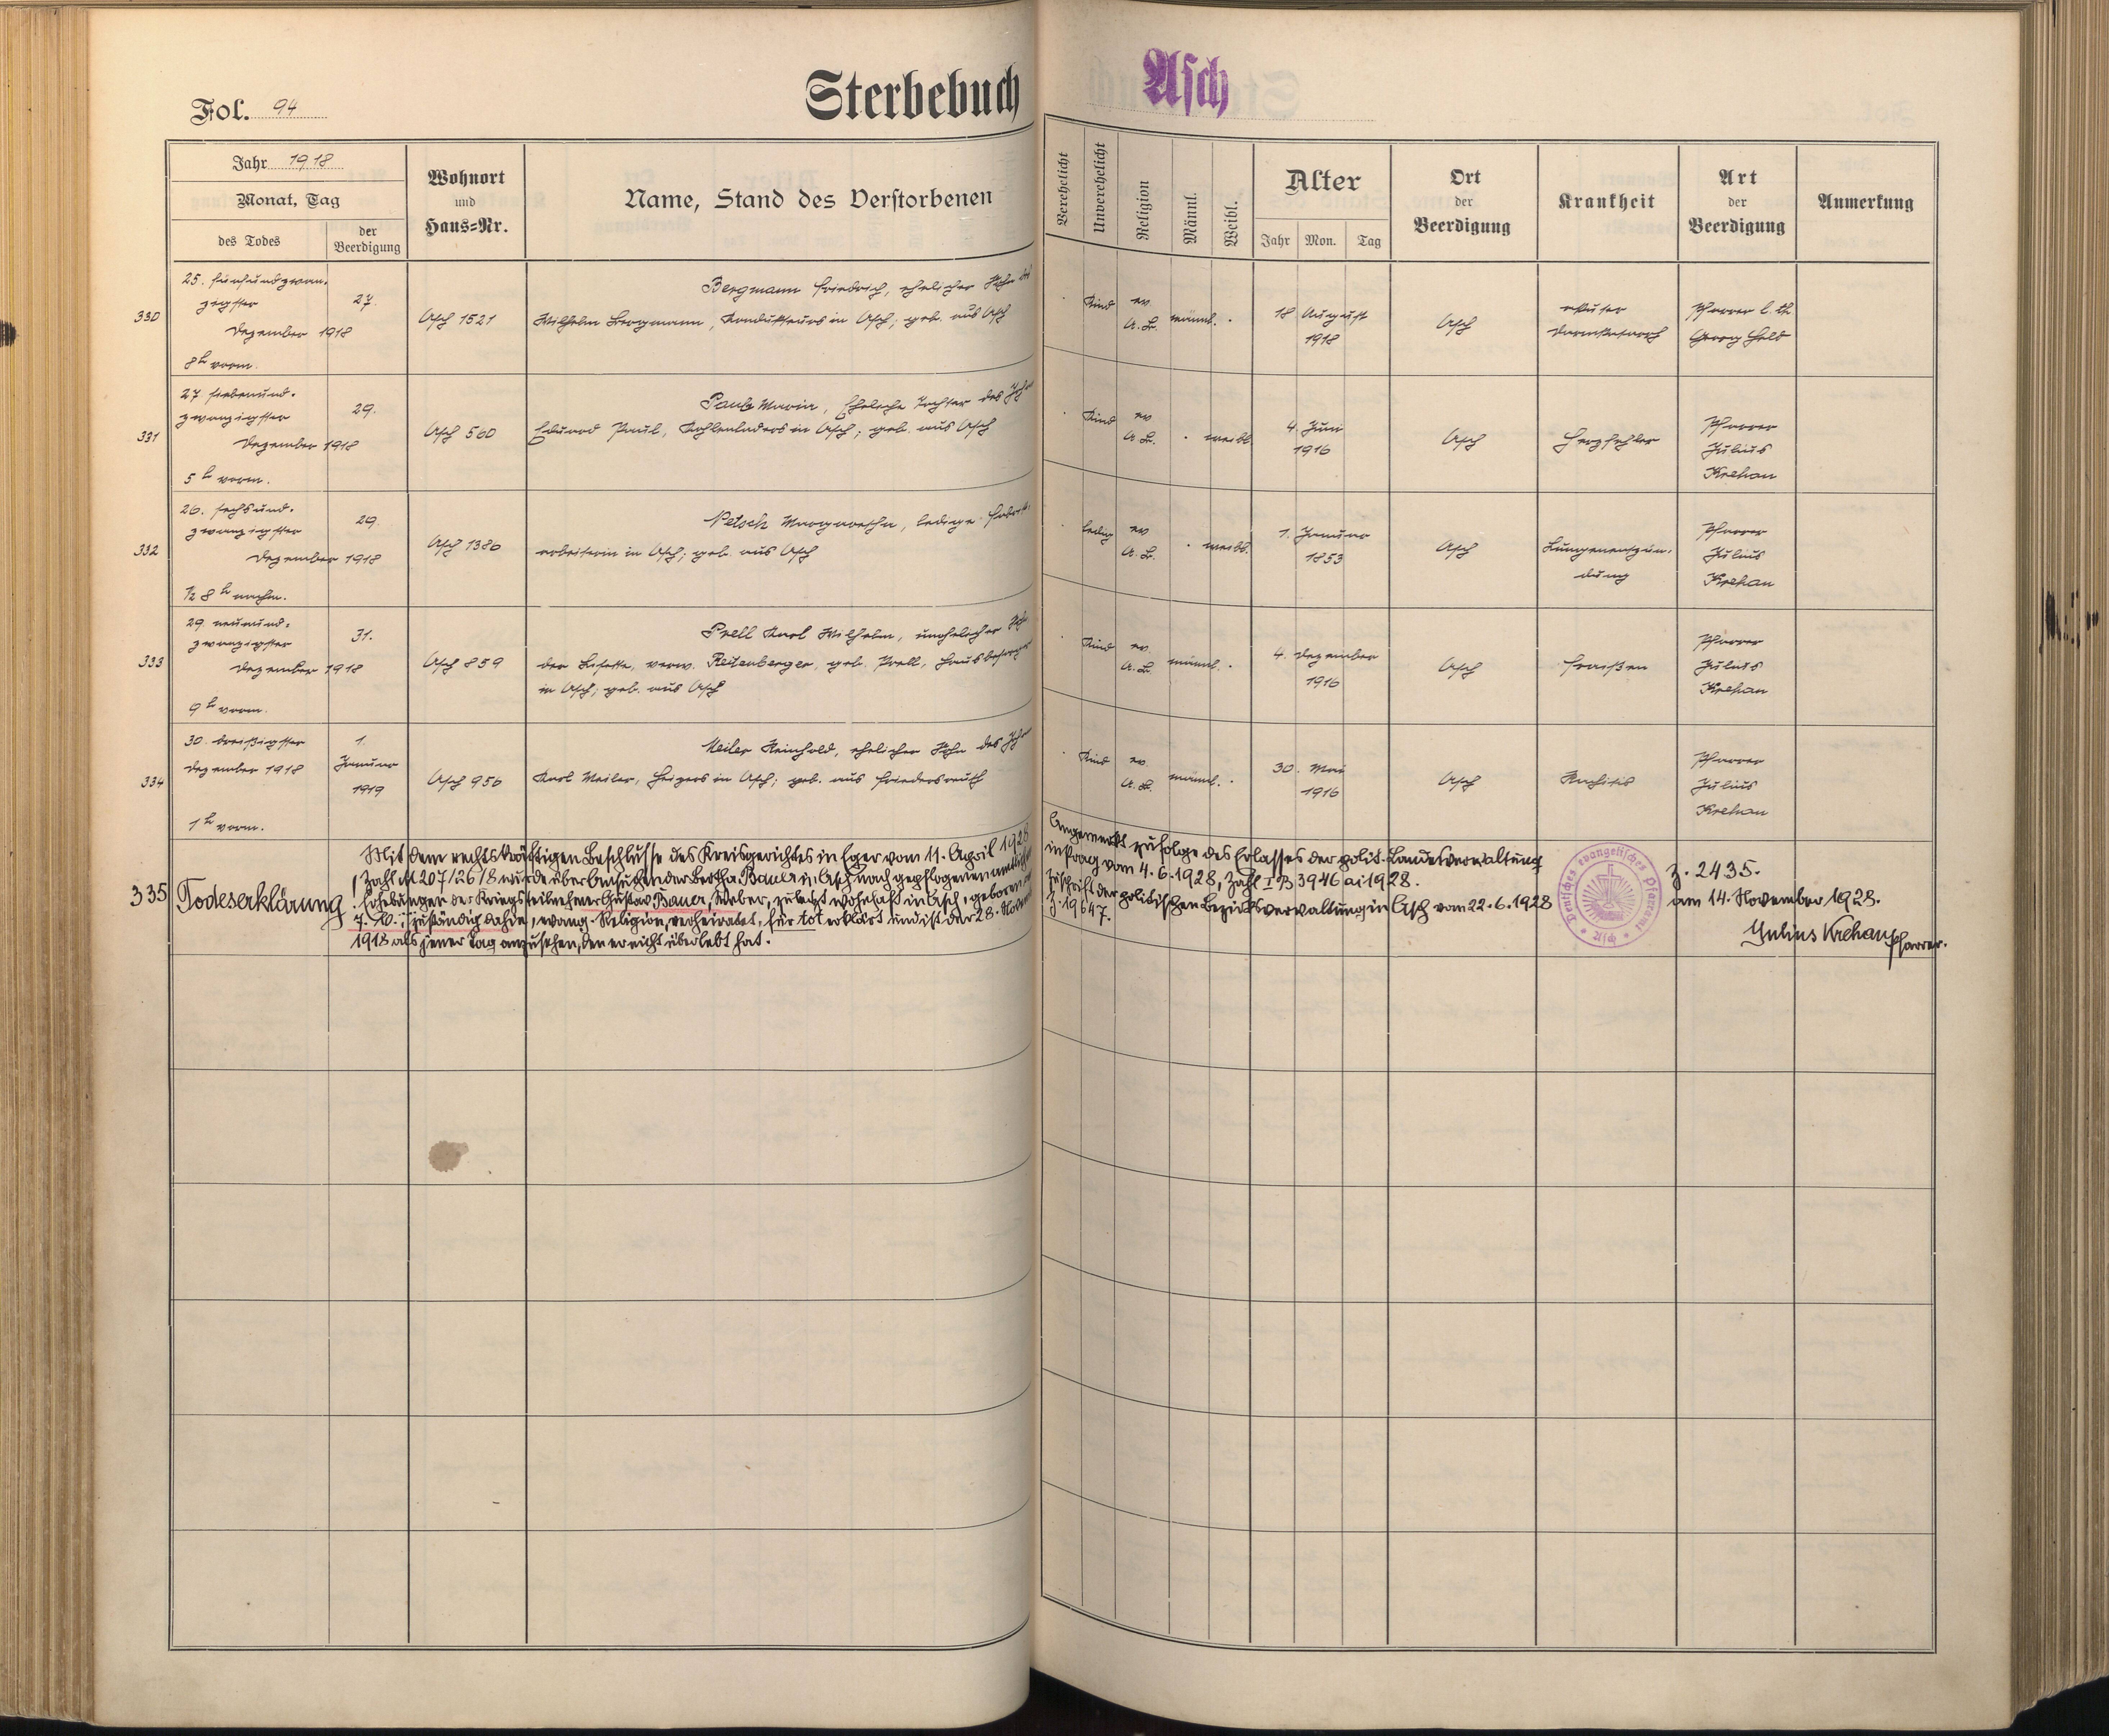 Fol. 94
Sterbebuch
Asch
Jahr 1918
Monat, Tag
des Todes
der
Beerdigung
Wohnort
und
Haus=Nr.
Name, Stand des Verstorbenen
Verehelicht
Unverehelicht
Religion
Männl.
Weibl.
Alter
Jahr
Mon.
Tag
Ort
der
Beerdigung
Krankheit
Art
der
Beerdigung
Anmerkung
330
25. fünfundzwan-
zigster
Dezember 1918
8h vorm.
27.
Asch 1521
Bergmann Friedrich, ehelicher Sohn des
Wilhelm Bergmann, Kondukteurs in Asch; geb. aus Asch
Kind
ev.
A. B.
männl.
18 August
1918
Asch
akuter
Darmkatarrh
Pfarrer
Georg Held
331
27 siebenund-
zwanzigster
Dezember 1918
5h vorm.
29.
Asch 560
Paul Maria, Eheliche Tochter des
Eduard Paul, Kohlenladers in Asch; geb. aus Asch
Kind
ev
A. B.
weibl.
4. Juni
1916
Asch
Herzfehler
Pfarrer
Julius
Krehan
332
26. sechsund-
zwanzigster
Dezember 1918
½ 8h nachm.
29.
Asch 1386
Petsch Margaretha, ledige Fabriks-
arbeiterin in Asch; geb. aus Asch
ledig
ev
A. B.
weibl.
1. Januar
1853
Asch
Lungenentzün-
dung
Pfarrer
Julius
Krehan
333
29 neunund-
zwanzigster
Dezember 1918
9h vorm.
31.
Asch 859
Prell Karl Wilhelm, unehelicher
der Lisette, verw. Reitenberger, geb. Prell, Hausbesorgerin
in Asch; geb. aus Asch
Kind
ev.
A. B.
männl.
4. Dezember
1916
Asch
Fraißen
Pfarrer
Julius
Krehan
334
30. dreißigster
Dezember 1918
1h vorm.
1.
Januar
1919
Asch 956
Meiler Reinhold, ehelicher Sohn des
Karl Meiler, Heizers in Asch; geb. aus Friedersreuth
Kind
ev
A. B.
männl.
30. Mai
1916
Asch
Rachitis
Pfarrer
Julius
Krehan
335
Todeserklärung
Mit dem rechtskräftigen Beschlusse des Kreisgerichtes in Eger vom 11. April 1928
Zahl 207/26/8 wurde über Ansuchen der Bertha Bauer in Asch nach gepflogenen amtlichen
Erhebungen der Kriegsteilnehmer Gustav Bauer, Weber, zuletzt wohnhaft in Asch, geboren
zuständig dahin, evang. Religion, verheiratet, für tot erklärt und ist der 28. November
1918 als jener Tag anzusehen, den er nicht überlebt hat.
Angemerkt zufolge des Erlasses der polit. Landesverwaltung
in Prag vom 4.6.1928, Zahl I B 3946 ai 1928.
Zuschrift der politischen Bezirksverwaltung in Asch vom 22.6.1928
Z. 19647.
Deutsches evangelisches Pfarramt * Asch *
Z. 2435.
am 14. November 1928.
Julius Krehan
Pfarrer.